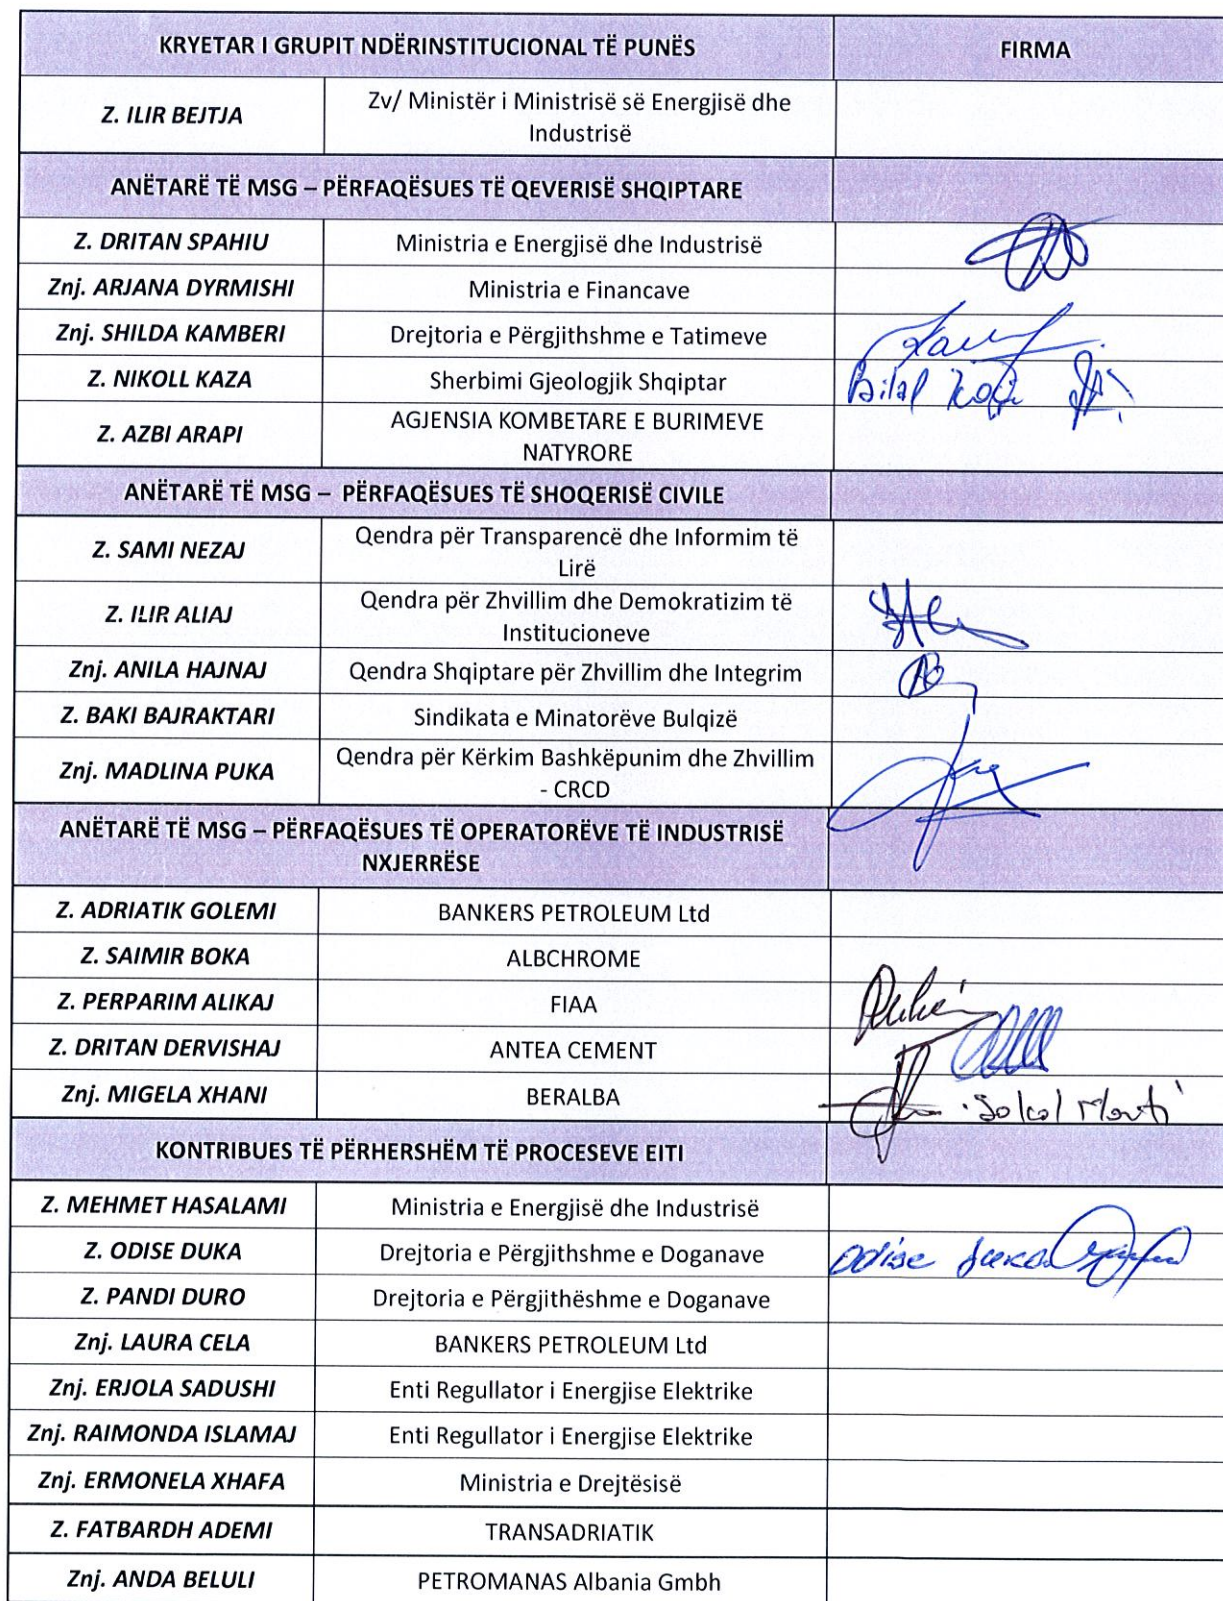 KRYETAR I GRUPIT NDËRINSTITUCIONAL TË PUNËS FIRMA
Z. ILIR BEJTJA Zv/ Ministër i Ministrisë së Energjisë dhe
Industrisë
ANËTARË TË MSG – PËRFAQËSUES TË QEVERISË SHQIPTARE
Z. DRITAN SPAHIU Ministria e Energjisë dhe Industrisë
Znj. ARJANA DYRMISHI Ministria e Financave
Znj. SHILDA KAMBERI Drejtoria e Përgjithshme e Tatimeve
Z. NIKOLL KAZA Sherbimi Gjeologjik Shqiptar Bilal
Z. AZBI ARAPI AGJENSIA KOMBETARE E BURIMEVE
NATYRORE
ANËTARË TË MSG – PËRFAQËSUES TË SHOQERISË CIVILE
Z. SAMI NEZAJ Qendra për Transparencë dhe Informim të
Lirë
Z. ILIR ALIAJ Qendra për Zhvillim dhe Demokratizim të
Institucioneve
Znj. ANILA HAJNAJ Qendra Shqiptare për Zhvillim dhe Integrim
Z. BAKI BAJRAKTARI Sindikata e Minatorëve Bulqizë
Znj. MADLINA PUKA Qendra për Kërkim Bashkëpunim dhe Zhvillim
- CRCD
ANËTARË TË MSG – PËRFAQËSUES TË OPERATORËVE TË INDUSTRISË
NXJERRËSE
Z. ADRIATIK GOLEMI BANKERS PETROLEUM Ltd
Z. SAIMIR BOKA ALBCHROME
Z. PERPARIM ALIKAJ FIAA
Z. DRITAN DERVISHAJ ANTEA CEMENT
Znj. MIGELA XHANI BERALBA Sokol
KONTRIBUES TË PËRHERSHËM TË PROCESEVE EITI
Z. MEHMET HASALAMI Ministria e Energjisë dhe Industrisë
Z. ODISE DUKA Drejtoria e Përgjithshme e Doganave Odise Duka
Z. PANDI DURO Drejtoria e Përgjithëshme e Doganave
Znj. LAURA CELA BANKERS PETROLEUM Ltd
Znj. ERJOLA SADUSHI Enti Regullator i Energjise Elektrike
Znj. RAIMONDA ISLAMAJ Enti Regullator i Energjise Elektrike
Znj. ERMONELA XHAFA Ministria e Drejtësisë
Z. FATBARDH ADEMI TRANSADRIATIK
Znj. ANDA BELULI PETROMANAS Albania Gmbh